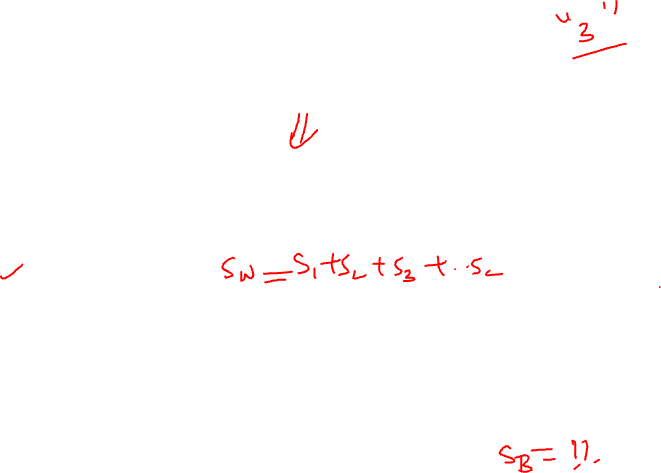 "3"
⇓
✓ S_W = S_1 + S_2 + S_3 + ... S_c
S_B = !!.